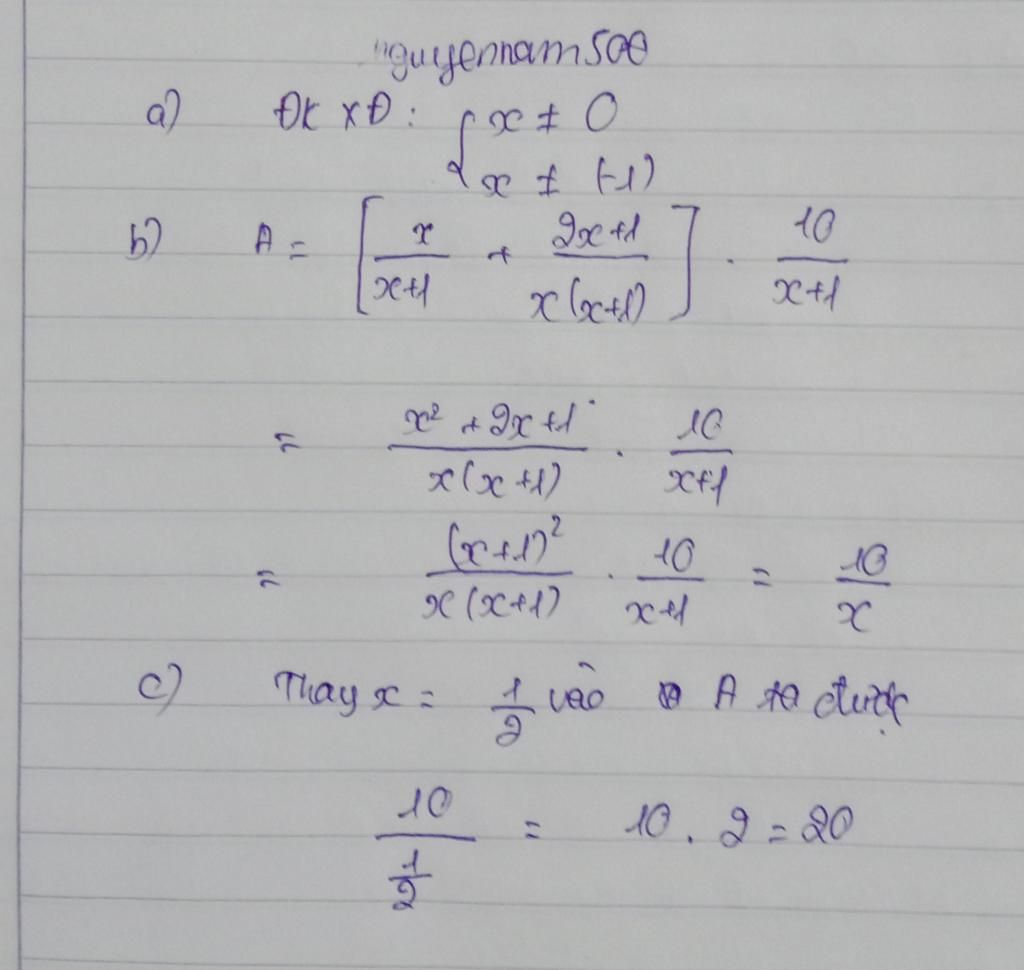 nguyennam500
a) ĐKXĐ: { x ≠ 0
x ≠ (-1)
b) A = [ x/(x+1) + (2x+1)/(x(x+1)) ] . 10/(x+1)
= (x² + 2x + 1)/(x(x+1)) . 10/(x+1)
= (x+1)²/(x(x+1)) . 10/(x+1) = 10/x
c) Thay x = 1/2 vào A ta được
10/(1/2) = 10 . 2 = 20